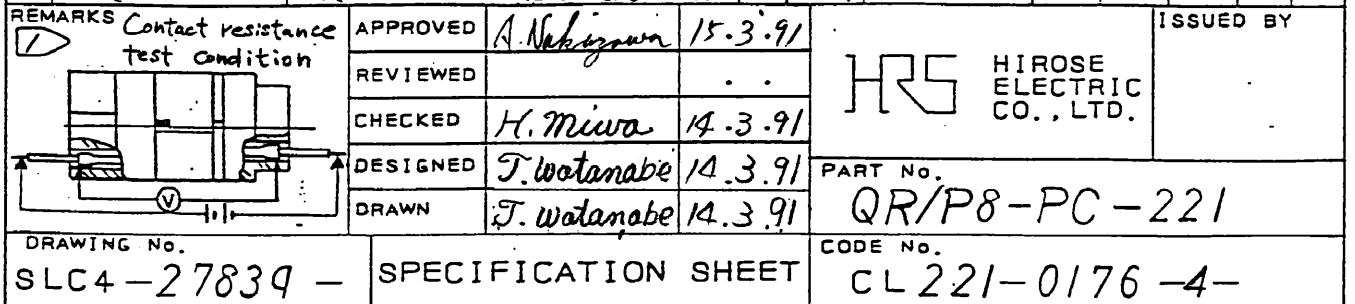 REMARKS
1 Contact resistance
test condition
V
APPROVED A. Nakazawa 15.3.91
REVIEWED . .
CHECKED H. Miwa 14.3.91
DESIGNED T. Watanabe 14.3.91
DRAWN T. Watanabe 14.3.91
HRS HIROSE
ELECTRIC
CO., LTD.
ISSUED BY
PART No.
QR/P8-PC-221
DRAWING No.
SLC4-27839-
SPECIFICATION SHEET
CODE No.
CL221-0176-4-